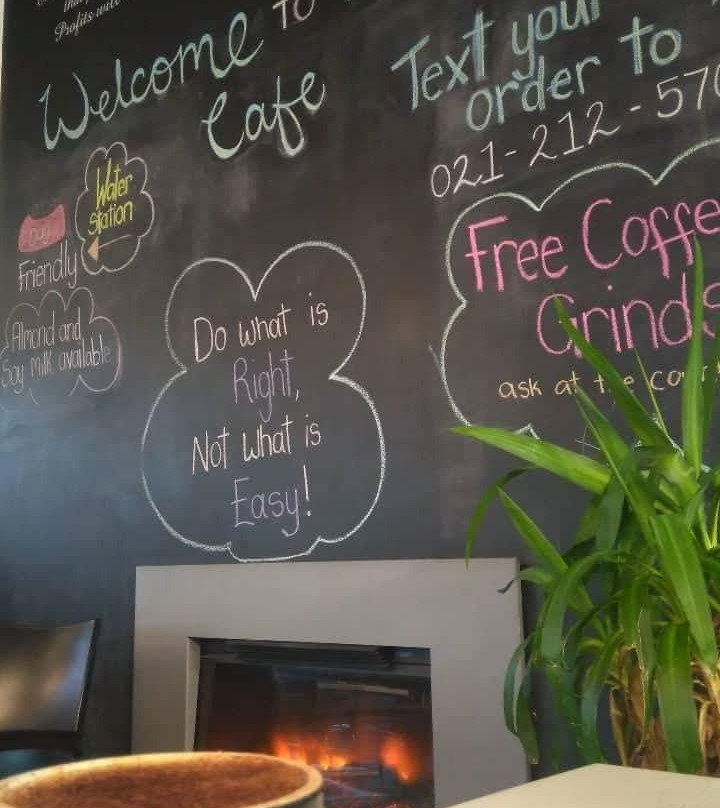 Profits will
Welcome to
Cafe
Text your
order to
021-212-570
Water
station
Dog
Friendly
Almond and
Soy milk available
Do what is
Right,
Not what is
Easy!
Free Coffee
Grinds
ask at the